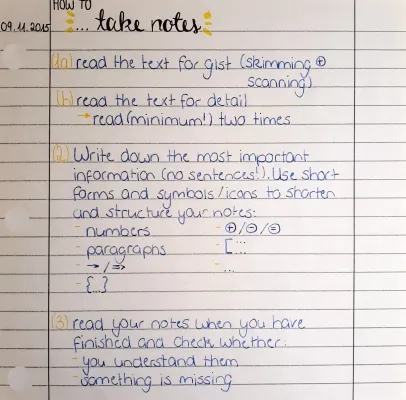 HOW TO
09.11.2015
... take notes
(1a) read the text for gist (skimming ⊕
scanning)
(b) read the text for detail
→ read (minimum!) two times
(2) Write down the most important
information (no sentences!). Use short
forms and symbols/icons to shorten
and structure your notes:
- numbers - ⊕/⊖/⊜
- paragraphs - [...
- → / => - ...
- {...}
(3) read your notes when you have
finished and check whether:
- you understand them
- something is missing